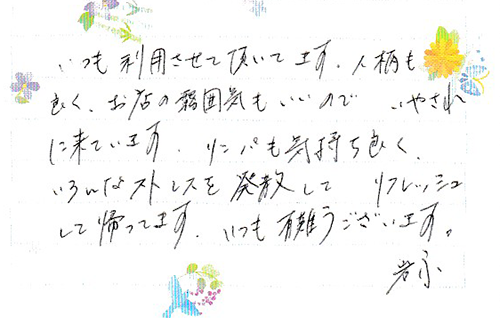 いつも利用させて頂いてます。人柄も
良く、お店の雰囲気もいいので いやされ
に来ています。リンパも気持ち良く、
いろんなストレスを発散して リフレッシュ
して帰ってます。いつも有難うございます。